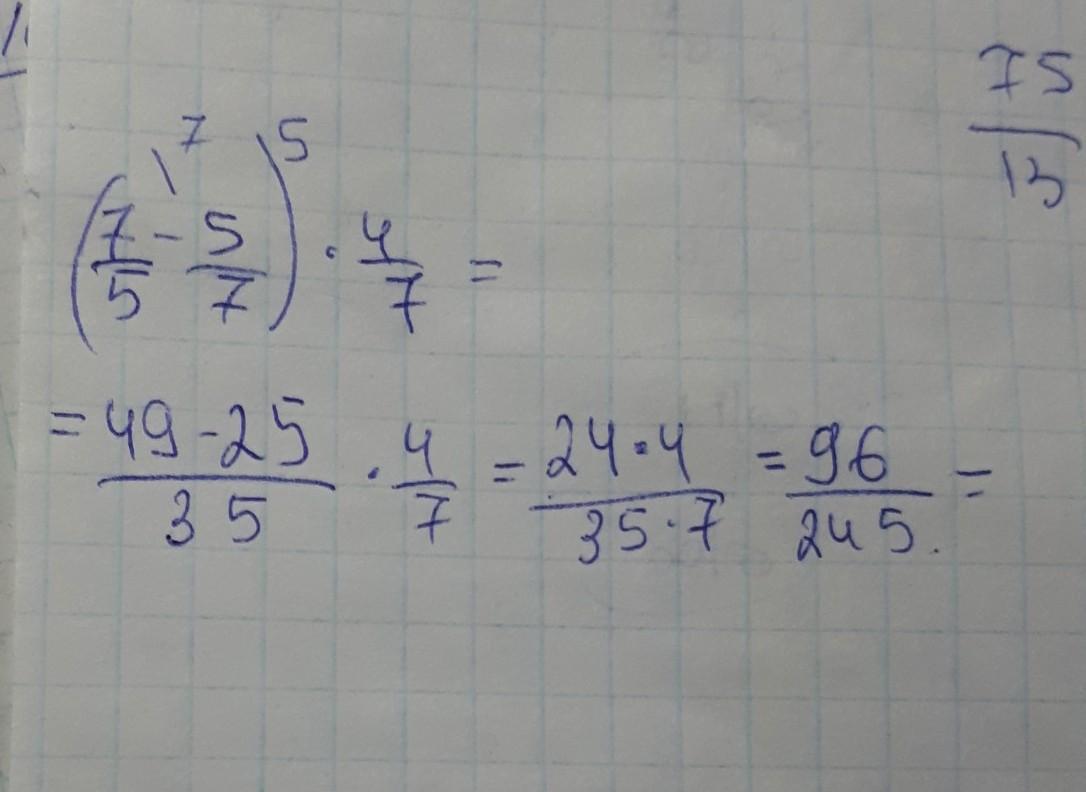 75
13
7 5
(7/5 - 5/7) · 4/7 =
= 49-25/35 · 4/7 = 24·4/35·7 = 96/245. =